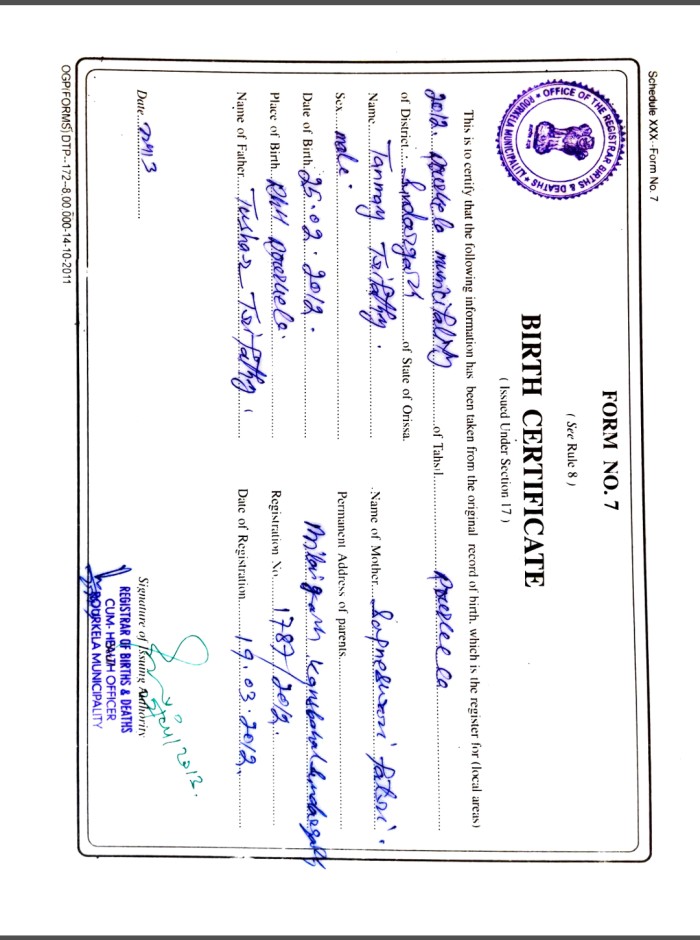 Schedule XXX--Form No. 7
FORM NO. 7
( See Rule 8 )
BIRTH CERTIFICATE
( Issued Under Section 17 )
OFFICE OF THE REGISTRAR BIRTHS & DEATHS
ROURKELA MUNICIPALITY
This is to certify that the following information has been taken from the original record of birth, which is the register for (local areas)
2012. Rourkela municipality of Tahsil Rourkela
of District Sundargarh of State of Orissa.
Name Tanmay Tripathy. Name of Mother
Sex male. Permanent Address of parents
Date of Birth 25.02.2012.
Place of Birth RGH Rourkela. Registration No. 1787/2012.
Name of Father Tushar Tripathy. Date of Registration 19.03.2012.
Date
Signature of Issuing Authority
REGISTRAR OF BIRTHS & DEATHS
CUM- HEALTH OFFICER
ROURKELA MUNICIPALITY
OGP(FORMS) DTP--172--8,00,000-14-10-2011